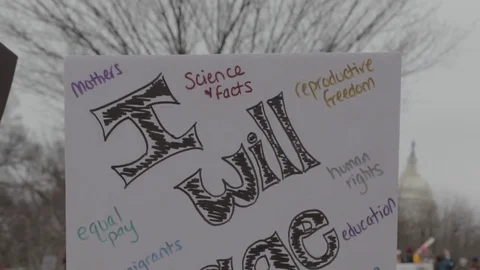 Mothers
Science
& facts
reproductive
freedom
I
will
human
rights
equal
pay
education